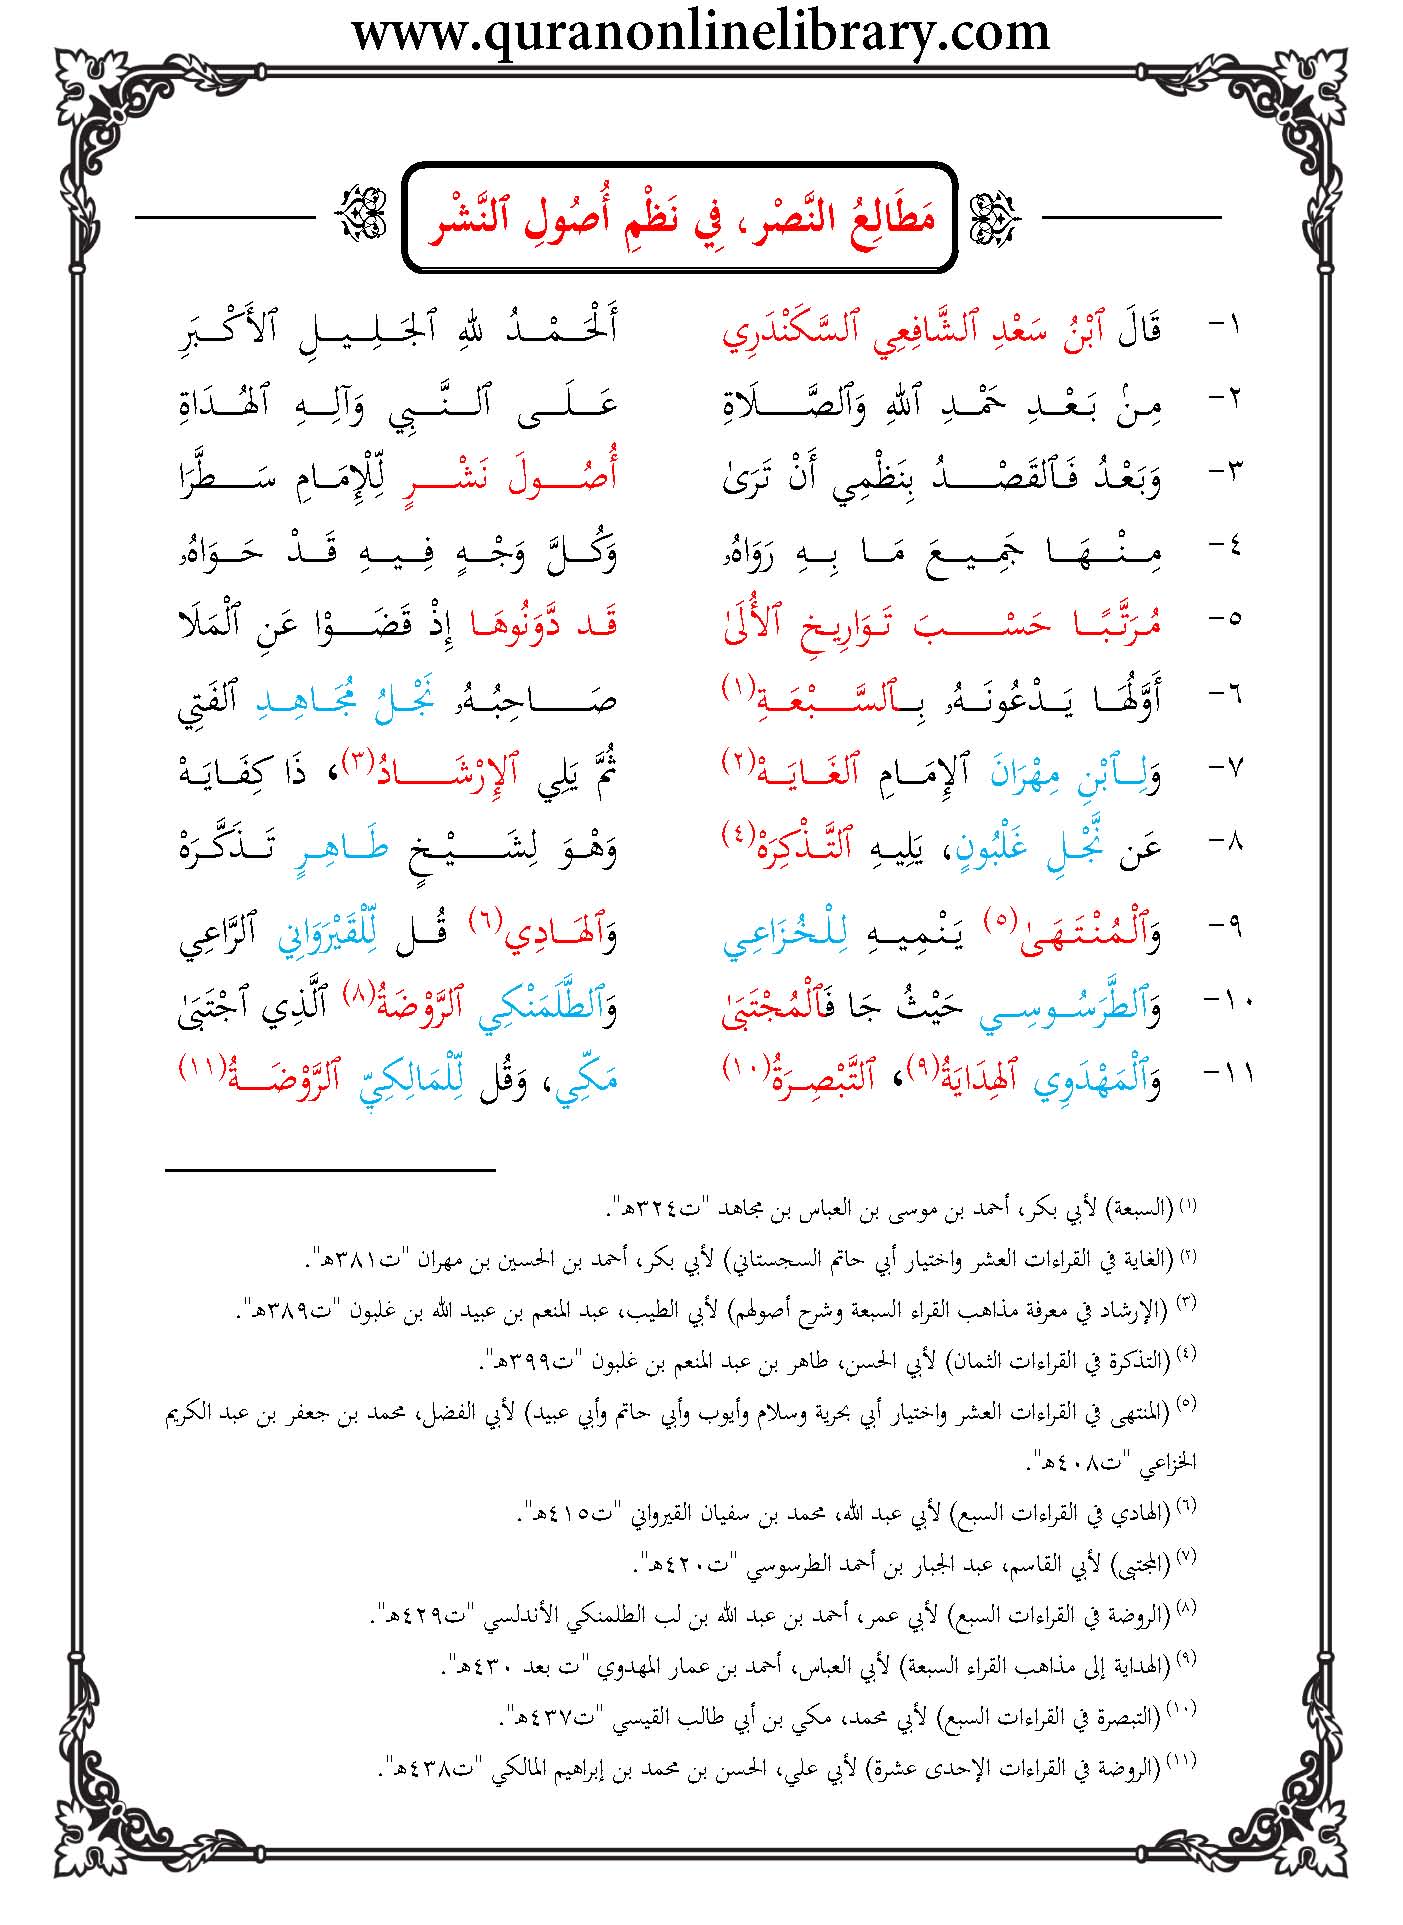 www.quranonlinelibrary.com
مَطَالِعُ النَّصْرِ، فِي نَظْمِ أُصُولِ ٱلنَّشْرِ
١- قَالَ ٱبْنُ سَعْدِ ٱلشَّافِعِي ٱلسَّكَنْدَرِي أَلْحَمْدُ لِلهِ ٱلجَلِيلِ ٱلأَكْبَرِ
٢- مِنۢ بَعْدِ حَمْدِ ٱللهِ وَٱلصَّلَاةِ عَلَى ٱلنَّبِي وَآلِهِ ٱلهُدَاةِ
٣- وَبَعْدُ فَٱلقَصْدُ بِنَظْمِي أَنْ تَرَىٰ أُصُولَ نَشْرٍ لِّلْإِمَامِ سَطَّرَا
٤- مِنْهَا جَمِيعَ مَا بِهِ رَوَاهُۥ وَكُلَّ وَجْهٍ فِيهِ قَدْ حَوَاهُۥ
٥- مُرَتَّبًا حَسْبَ تَوَارِيخِ ٱلأُلَىٰ قَد دَّوَّنُوهَا إِذْ قَضَوْا عَنِ ٱلْمَلَا
٦- أَوَّلُهَا يَدْعُونَهُۥ بِٱلسَّبْعَةِ(١) صَاحِبُهُۥ نَجْلُ مُجَاهِدِ ٱلفَتِي
٧- وَلِٱبْنِ مِهْرَانَ ٱلإِمَامِ ٱلغَايَهْ(٢) ثُمَّ يَلِي ٱلإِرْشَادُ(٣)، ذَا كِفَايَهْ
٨- عَن نَّجْلِ غَلْبُونٍ، يَلِيهِ ٱلتَّذْكِرَهْ(٤) وَهْوَ لِشَيْخٍ طَاهِرٍ تَذَكَّرَهْ
٩- وَٱلْمُنْتَهَىٰ(٥) يَنْمِيهِ لِلْخُزَاعِي وَٱلهَادِي(٦) قُل لِّلْقَيْرَوَانِي ٱلرَّاعِي
١٠- وَٱلطَّرَسُوسِي حَيْثُ جَا فَٱلْمُجْتَبَىٰ وَٱلطَّلَمَنْكِي ٱلرَّوْضَةُ(٨) ٱلَّذِي ٱجْتَبَىٰ
١١- وَٱلْمَهْدَوِي ٱلهِدَايَةُ(٩)، ٱلتَّبْصِرَةُ(١٠) مَكِّي، وَقُل لِّلْمَالِكِيِّ ٱلرَّوْضَةُ(١١)
(١) (السبعة) لأبي بكر، أحمد بن موسى بن العباس بن مجاهد "ت٣٢٤هـ".
(٢) (الغاية في القراءات العشر واختيار أبي حاتم السجستاني) لأبي بكر، أحمد بن الحسين بن مهران "ت٣٨١هـ".
(٣) (الإرشاد في معرفة مذاهب القراء السبعة وشرح أصولهم) لأبي الطيب، عبد المنعم بن عبيد الله بن غلبون "ت٣٨٩هـ".
(٤) (التذكرة في القراءات الثمان) لأبي الحسن، طاهر بن عبد المنعم بن غلبون "ت٣٩٩هـ".
(٥) (المنتهى في القراءات العشر واختيار أبي بحرية وسلام وأيوب وأبي حاتم وأبي عبيد) لأبي الفضل، محمد بن جعفر بن عبد الكريم
الخزاعي "ت٤٠٨هـ".
(٦) (الهادي في القراءات السبع) لأبي عبد الله، محمد بن سفيان القيرواني "ت٤١٥هـ".
(٧) (المجتبى) لأبي القاسم، عبد الجبار بن أحمد الطرسوسي "ت٤٢٠هـ".
(٨) (الروضة في القراءات السبع) لأبي عمر، أحمد بن عبد الله بن لب الطلمنكي الأندلسي "ت٤٢٩هـ".
(٩) (الهداية إلى مذاهب القراء السبعة) لأبي العباس، أحمد بن عمار المهدوي "ت بعد ٤٣٠هـ".
(١٠) (التبصرة في القراءات السبع) لأبي محمد، مكي بن أبي طالب القيسي "ت٤٣٧هـ".
(١١) (الروضة في القراءات الإحدى عشرة) لأبي علي، الحسن بن محمد بن إبراهيم المالكي "ت٤٣٨هـ".